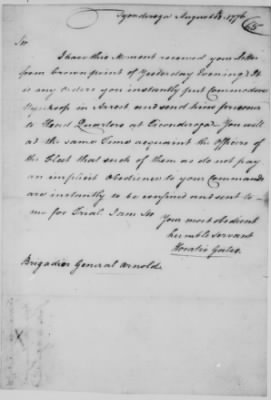 Tyonderoga August 8th. 1776
65
Sir
I have this Moment received your Letter
from Crown point of Yesterday Evening; It
is my orders you instantly put Commodore
Wynkoop in Arrest and send him prisoner
to Head Quarters at Ticonderoga. You will
at the same Time acquaint the Officers of
the Fleet that such of them as do not pay
an implicit Obedience to your Commands
are instantly to be confined and sent to
me for Trial. I am Sir
Your most obedient
humble servant
Horatio Gates.
Brigadier General Arnold.